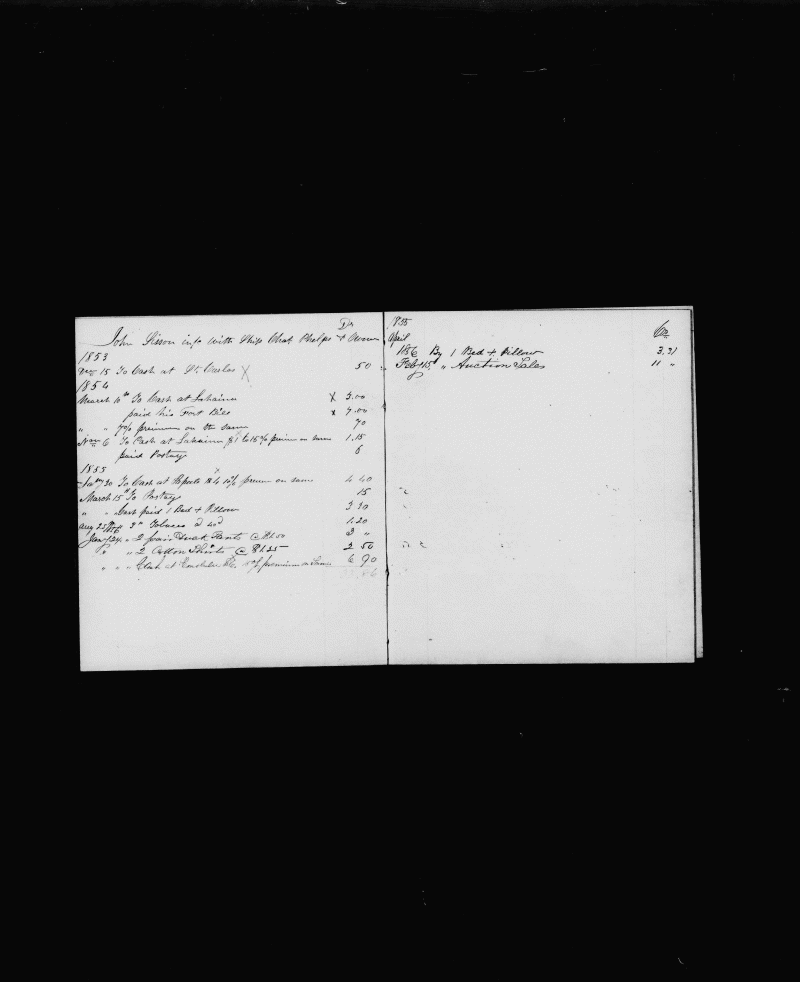 Dr
John Sisson in a/c with Ship Chas Phelps & Owners
1853
Dec 15 To Cash at St Carlos X 50
1854
March 10th To Cash at Lahaina X 3.00
paid his Fort Bill X 7.00
" " 7% premium on the same 70
Nov 6 To Cash at Lahaina $1 & 15% premium on same 1.15
paid Postage 6
1855
30 To Cash at $4 10% premium on same 4 40
March 15th To Postage 15
" " Cash paid 1 Bed & Pillow 3 30
Aug 25th Tobacco 1.20
Jany 24 " 2 pair Duck Pants @ $1.50 3 "
" " 2 Cotton Shirts @ $1.25 2 50
" " " Cash at premium on same 6 90
1855
Cr
April
1856 By 1 Bed & Pillow 3.31
Feby 15th " Auction Sales 11 "